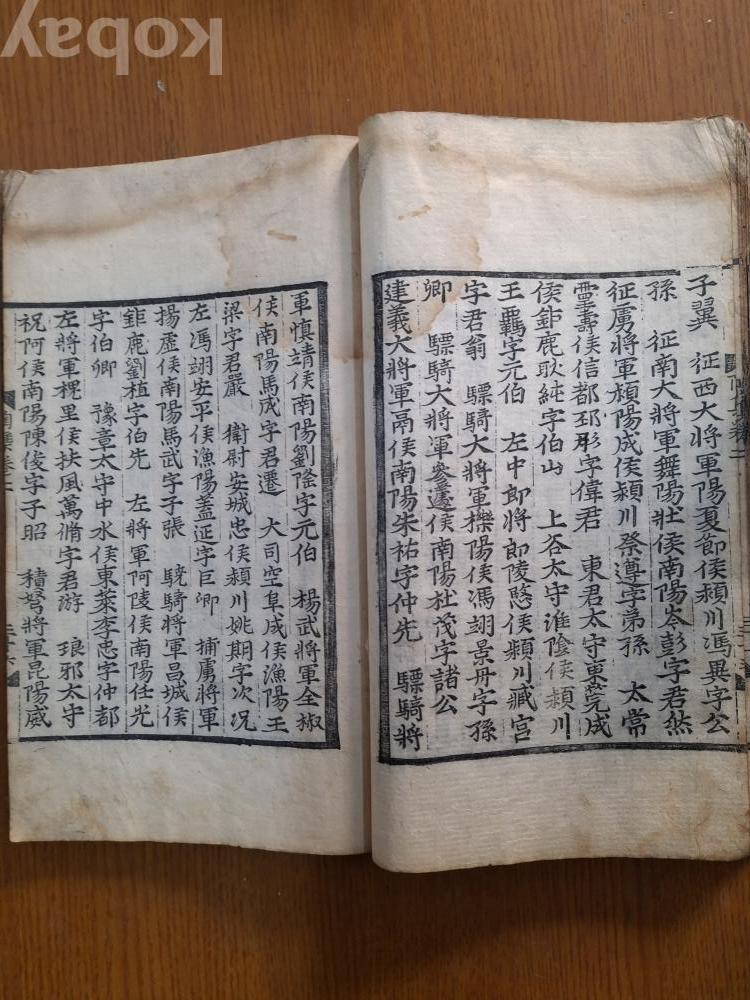 子翼 征西大將軍陽夏節侯潁川馮異字公
孫 征南大將軍舞陽壯侯南陽岑彭字君然
征虜將軍潁陽成侯潁川祭遵字弟孫 太常
靈壽侯信都邳彤字偉君 東君太守東莞成
侯鉅鹿耿純字伯山 上谷太守淮陰侯潁川
王霸字元伯 左中郎將郎陵愍侯潁川臧宮
字君翁 驃騎大將軍櫟陽侯馮翊景丹字孫
卿 驃騎大將軍參蘧侯南陽杜茂字諸公
建義大將軍鬲侯南陽朱祐字仲先 驃騎將
軍愼靖侯南陽劉隆字元伯 楊武將軍全椒
侯南陽馬成字君遷 大司空阜成侯漁陽王
梁字君嚴 衛尉安城忠侯潁川姚期字次況
左馮翊安平侯漁陽蓋延字巨卿 捕虜將軍
揚虛侯南陽馬武字子張 驍騎將軍昌城侯
鉅鹿劉植字伯先 左將軍阿陵侯南陽任光
字伯卿 豫章太守中水侯東萊李忠字仲都
左將軍槐里侯扶風萬脩字君游 琅邪太守
祝阿侯南陽陳俊字子昭 積弩將軍昆陽威
kobay